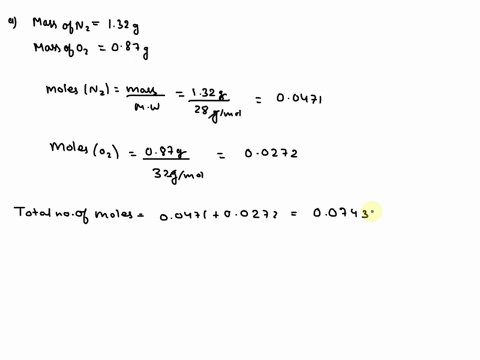 a) Mass of N₂ = 1.32 g
Mass of O₂ = 0.87 g
moles (N₂) = mass / M.W = 1.32 g / 28 g/mol = 0.0471
Moles (O₂) = 0.87 g / 32 g/mol = 0.0272
Total no. of moles = 0.0471 + 0.0272 = 0.0743